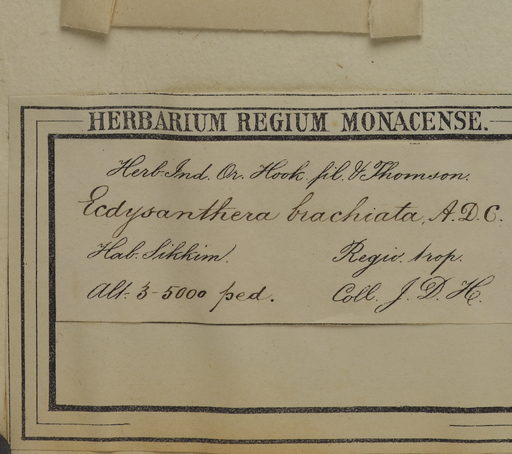 HERBARIUM REGIUM MONACENSE.
Herb. Ind. Or. Hook fil. & Thomson.
Ecdysanthera brachiata, A.D.C.
Hab. Sikkim. Regio. trop.
Alt. 3-5000 ped. Coll. J. D. H.